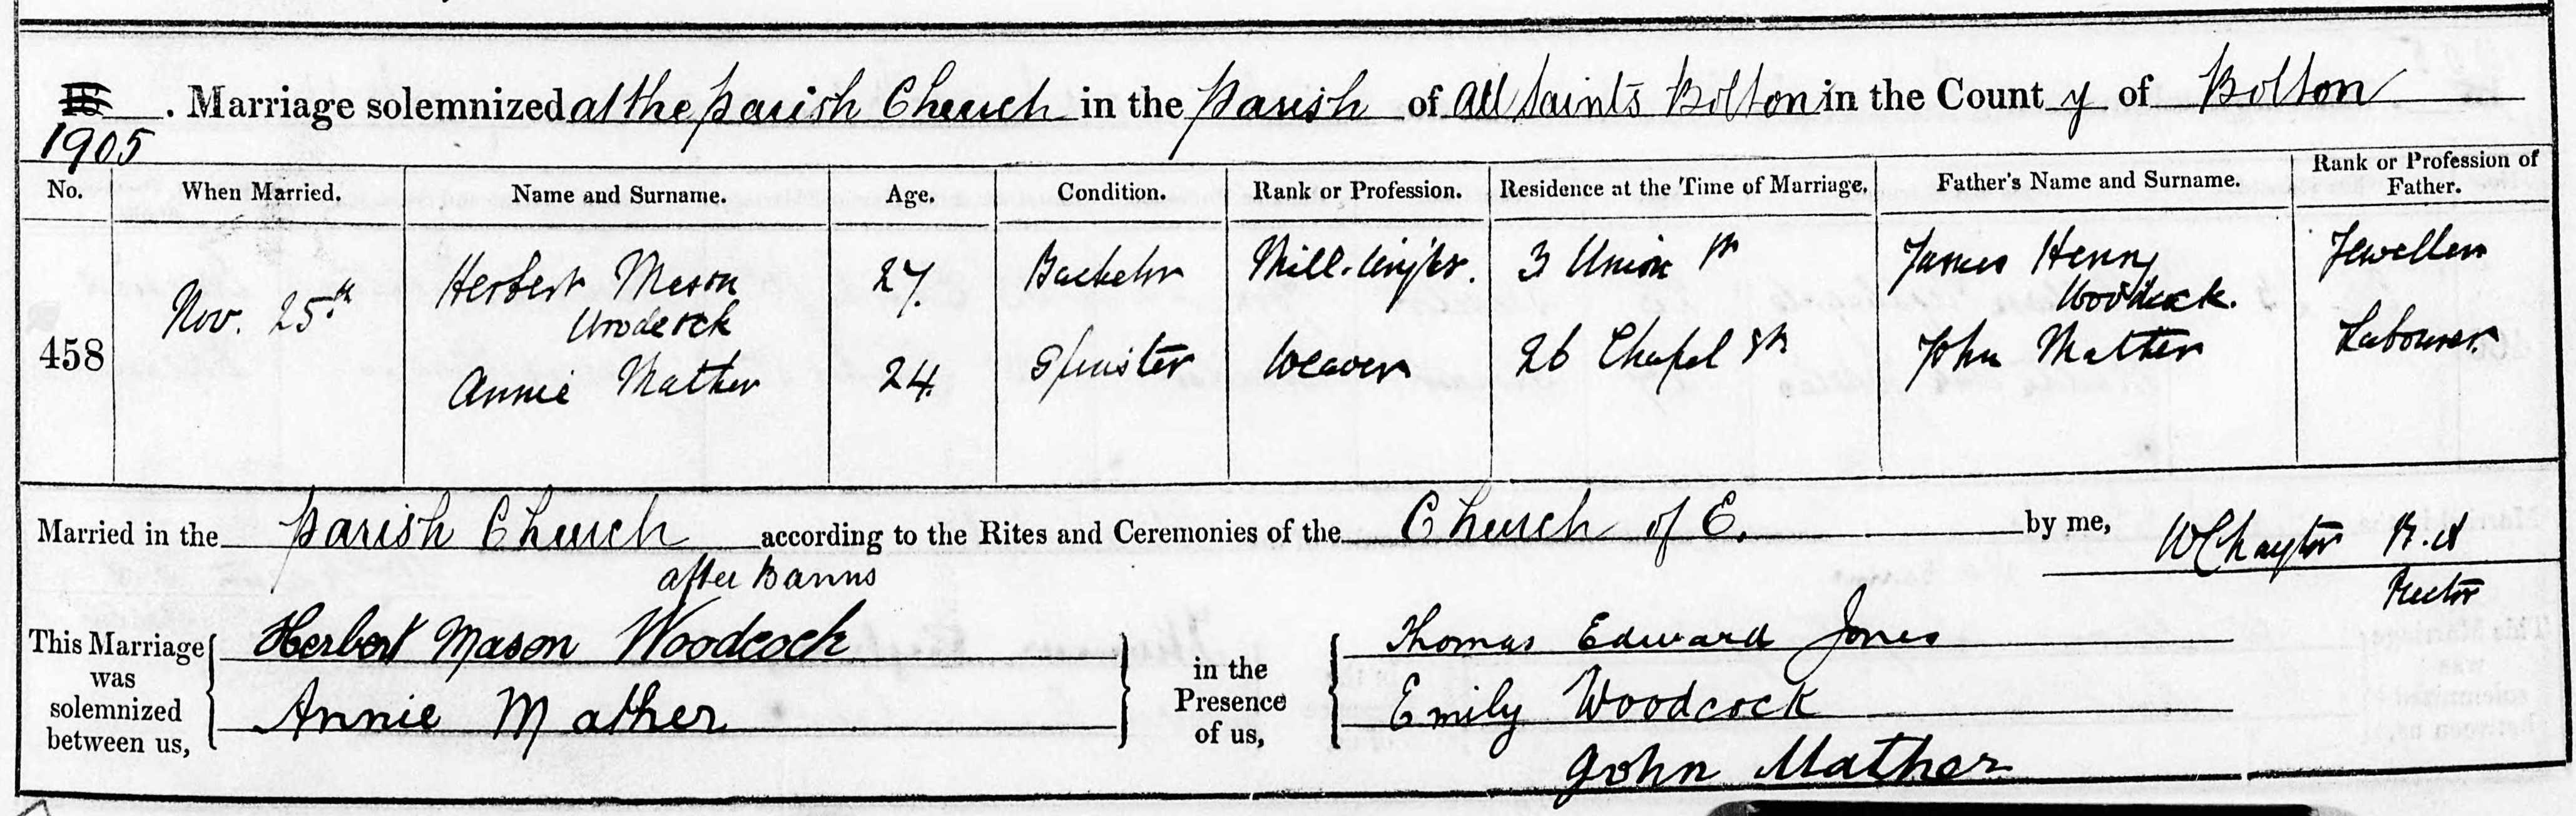 . Marriage solemnized at the parish Church in the parish of All Saints Bolton in the County of Bolton
1905
No. When Married. Name and Surname. Age. Condition. Rank or Profession. Residence at the Time of Marriage. Father's Name and Surname. Rank or Profession of Father.
458 Nov. 25th Herbert Mason Woodcock 27. Bachelor Mill-wright. 3 Union St James Henry Woodcock. Jeweller
Annie Mather 24. Spinster Weaver 26 Chapel St John Mather Labourer
Married in the parish Church according to the Rites and Ceremonies of the Church of E. by me, W Chaytor
after Banns Rector
This Marriage was solemnized between us, Herbert Mason Woodcock in the Presence of us, Thomas Edward Jones
Annie Mather Emily Woodcock
John Mather